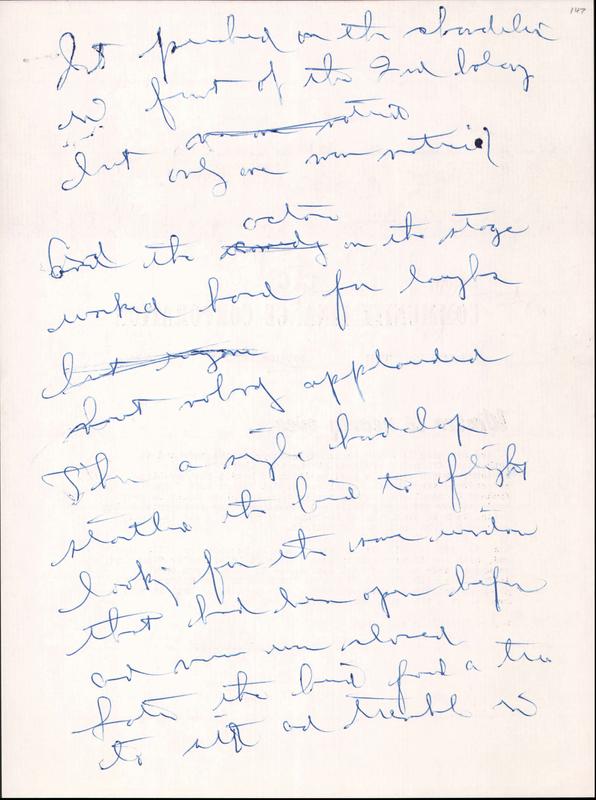 147
It perched on the chandelier
in front of the 2nd balcony
no one noticed
but only one man noticed
and the
actors
comedy on the stage
worked hard for laughs
but anyone
but nobody applauded
Then a single handclap
startled the bird to flight
looking for the same window
that had been open before
and now was closed
later the bird found a tree
to sit and tremble in